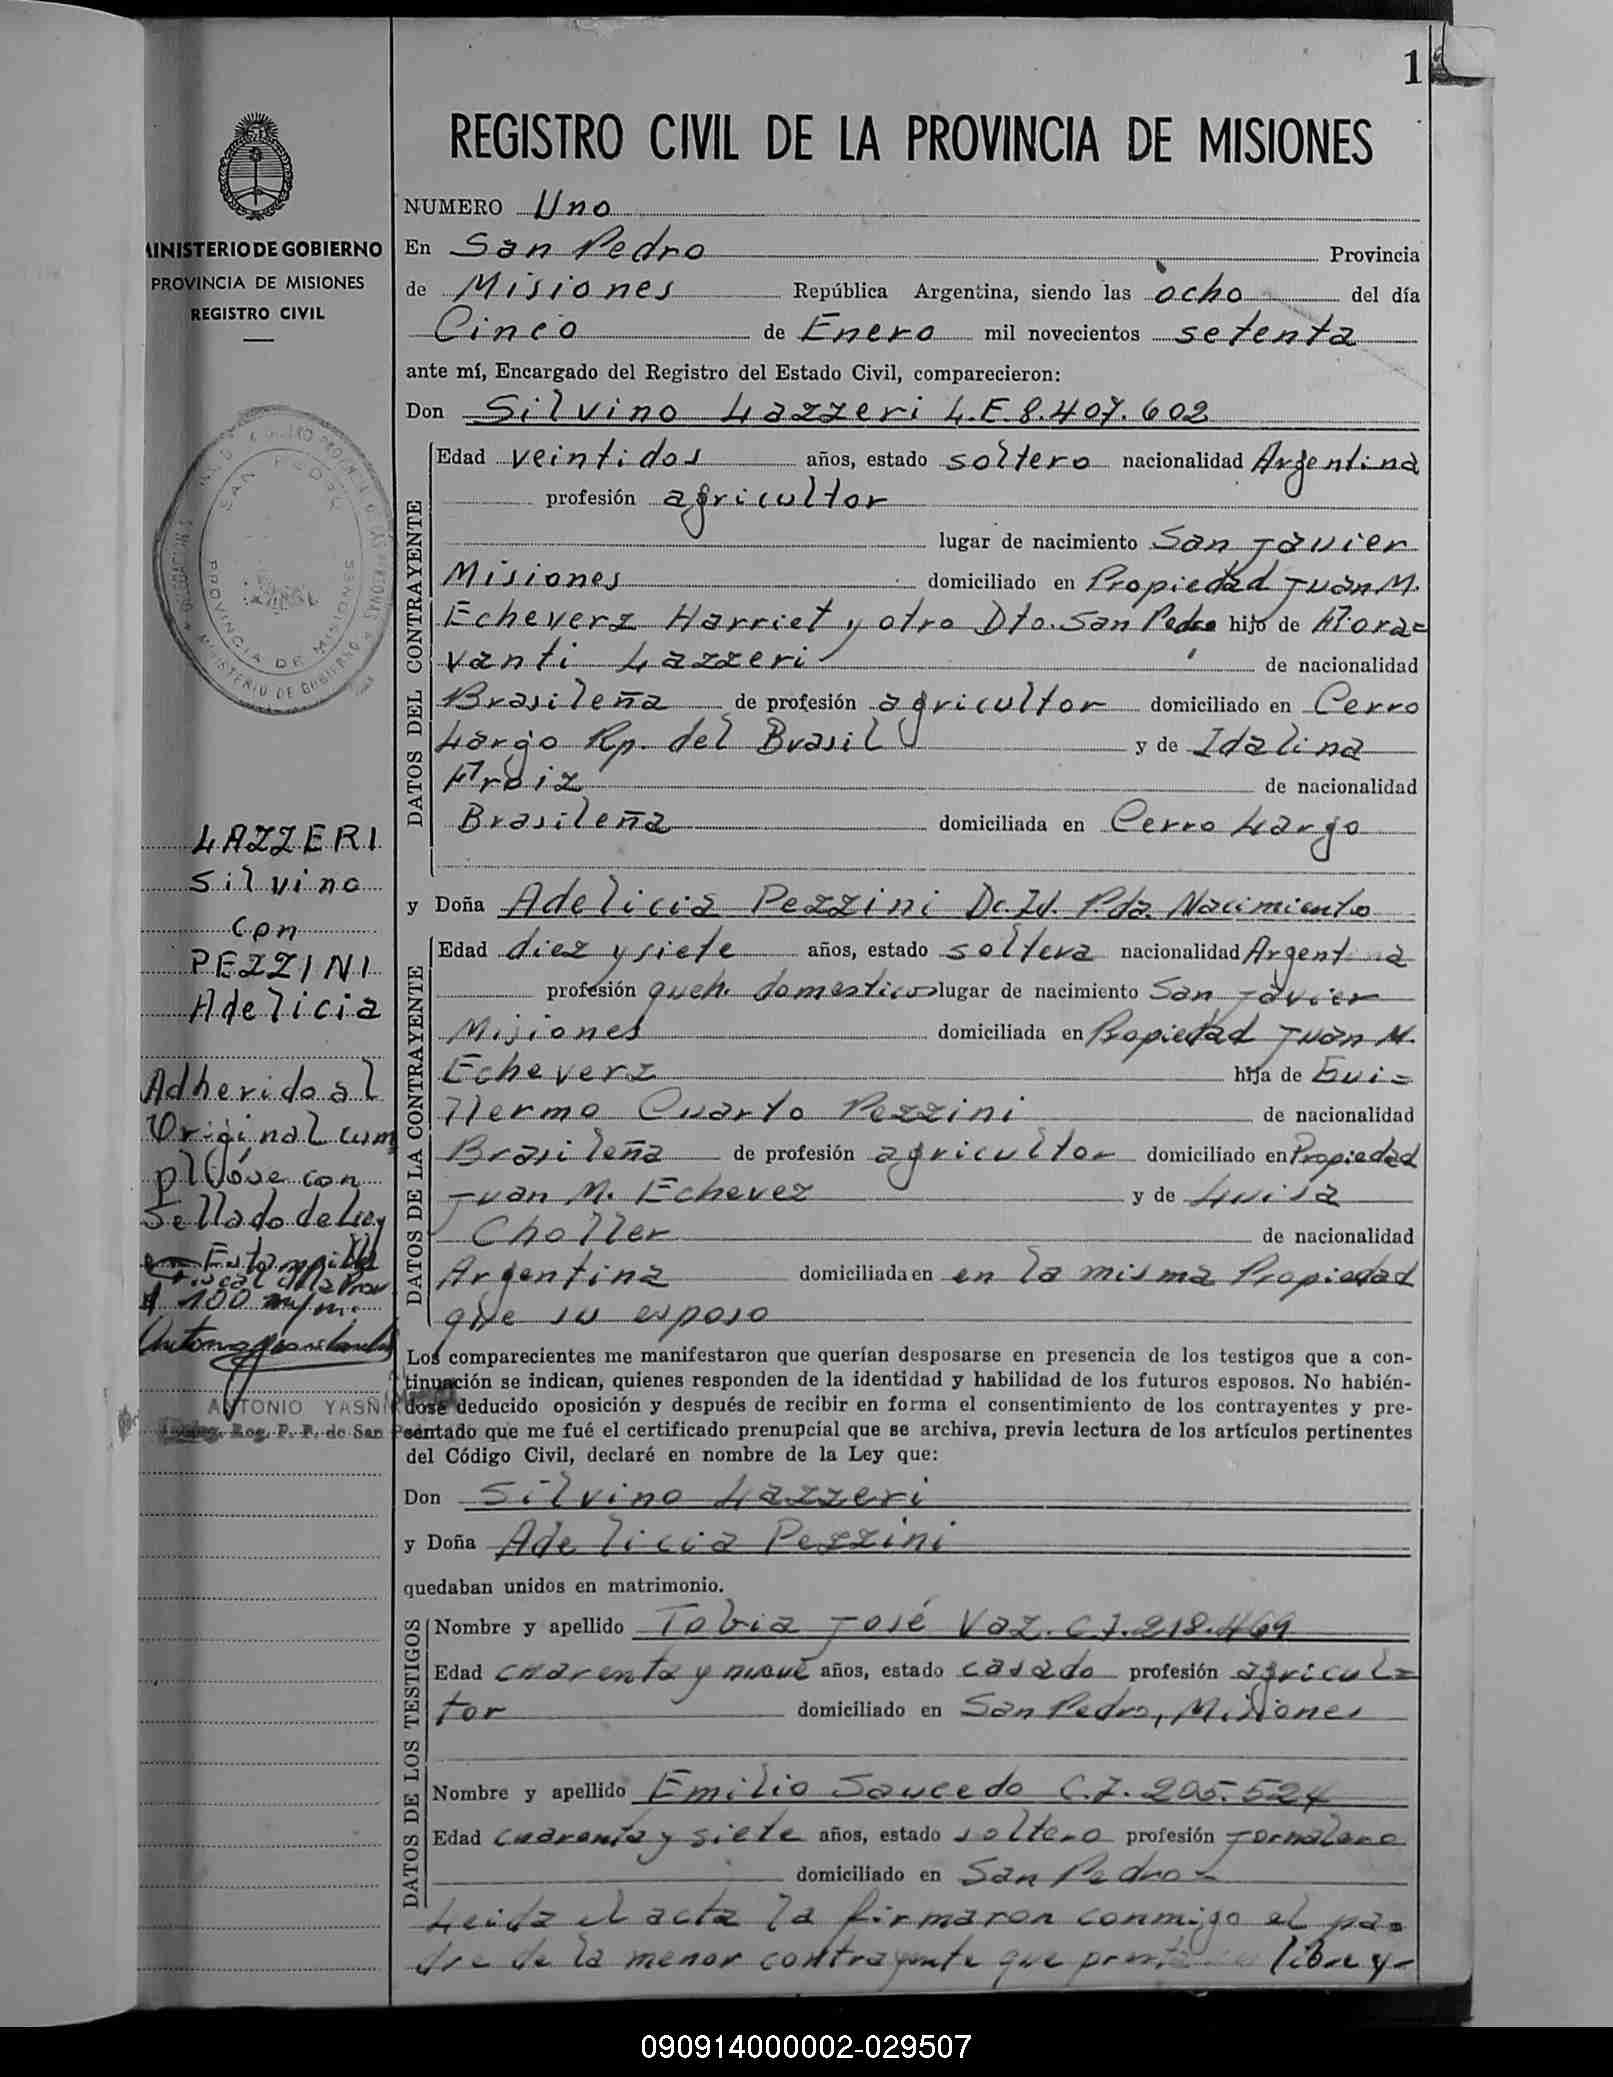 1
REGISTRO CIVIL DE LA PROVINCIA DE MISIONES
MINISTERIO DE GOBIERNO
PROVINCIA DE MISIONES
REGISTRO CIVIL
NUMERO Uno
En San Pedro Provincia
de Misiones República Argentina, siendo las ocho del día
Cinco de Enero mil novecientos setenta
ante mí, Encargado del Registro del Estado Civil, comparecieron:
Don Silvino Lazzeri L.E 8.407.602
DATOS DEL CONTRAYENTE
Edad veintidos años, estado soltero nacionalidad Argentina
profesión agricultor
lugar de nacimiento San Javier
Misiones domiciliado en Propiedad Juan M.
Echeverz Harriet y otro Dto. San Pedro hijo de Fiora=
vanti Lazzeri de nacionalidad
Brasileña de profesión agricultor domiciliado en Cerro
Largo Rp. del Brasil y de Idalina
Froiz de nacionalidad
Brasileña domiciliada en Cerro Largo
y Doña Adelicia Pezzini Dc. Id. Pda. Nacimiento
DATOS DE LA CONTRAYENTE
Edad diez y siete años, estado soltera nacionalidad Argentina
profesión queh. domesticos lugar de nacimiento San Javier
Misiones domiciliada en Propiedad Juan M.
Echeverz hija de Gui=
llermo Cuarto Pezzini de nacionalidad
Brasileña de profesión agricultor domiciliado en Propiedad
Juan M. Echevez y de Luisa
Choller de nacionalidad
Argentina domiciliada en en la misma Propiedad
que su esposo
Los comparecientes me manifestaron que querían desposarse en presencia de los testigos que a con-
tinuación se indican, quienes responden de la identidad y habilidad de los futuros esposos. No habién-
dose deducido oposición y después de recibir en forma el consentimiento de los contrayentes y pre-
sentado que me fué el certificado prenupcial que se archiva, previa lectura de los artículos pertinentes
del Código Civil, declaré en nombre de la Ley que:
Don Silvino Lazzeri
y Doña Adelicia Pezzini
quedaban unidos en matrimonio.
DATOS DE LOS TESTIGOS
Nombre y apellido Tobia José Vaz. C.I. 218.469
Edad cuarenta y nueve años, estado casado profesión agricul=
tor domiciliado en San Pedro, Misiones
Nombre y apellido Emilio Saucedo C.I. 205.524
Edad cuarenta y siete años, estado soltero profesión Jornalero
domiciliado en San Pedro-
Leida el acta la firmaron conmigo el pa=
dre de la menor contrayente que libre y-
LAZZERI
Silvino
con
PEZZINI
Adelicia
Adherido al
Original cum
plióse con
Sellado de Ley
Estampilla
Fiscal de la Prov
$ 100 m/n.
ANTONIO
Reg. P. P. de San Pedro
SAN PEDRO
PROVINCIA DE MISIONES
MINISTERIO DE GOBIERNO
090914000002-029507